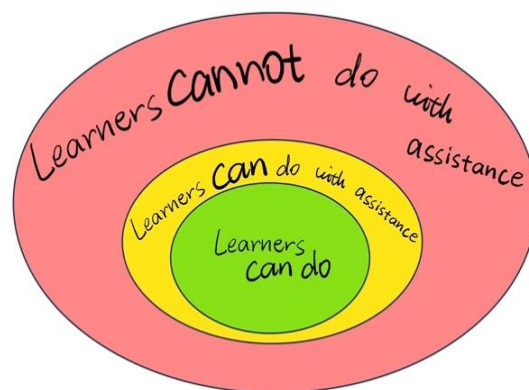 Learners cannot do with
assistance
Learners can do with assistance
Learners
can do